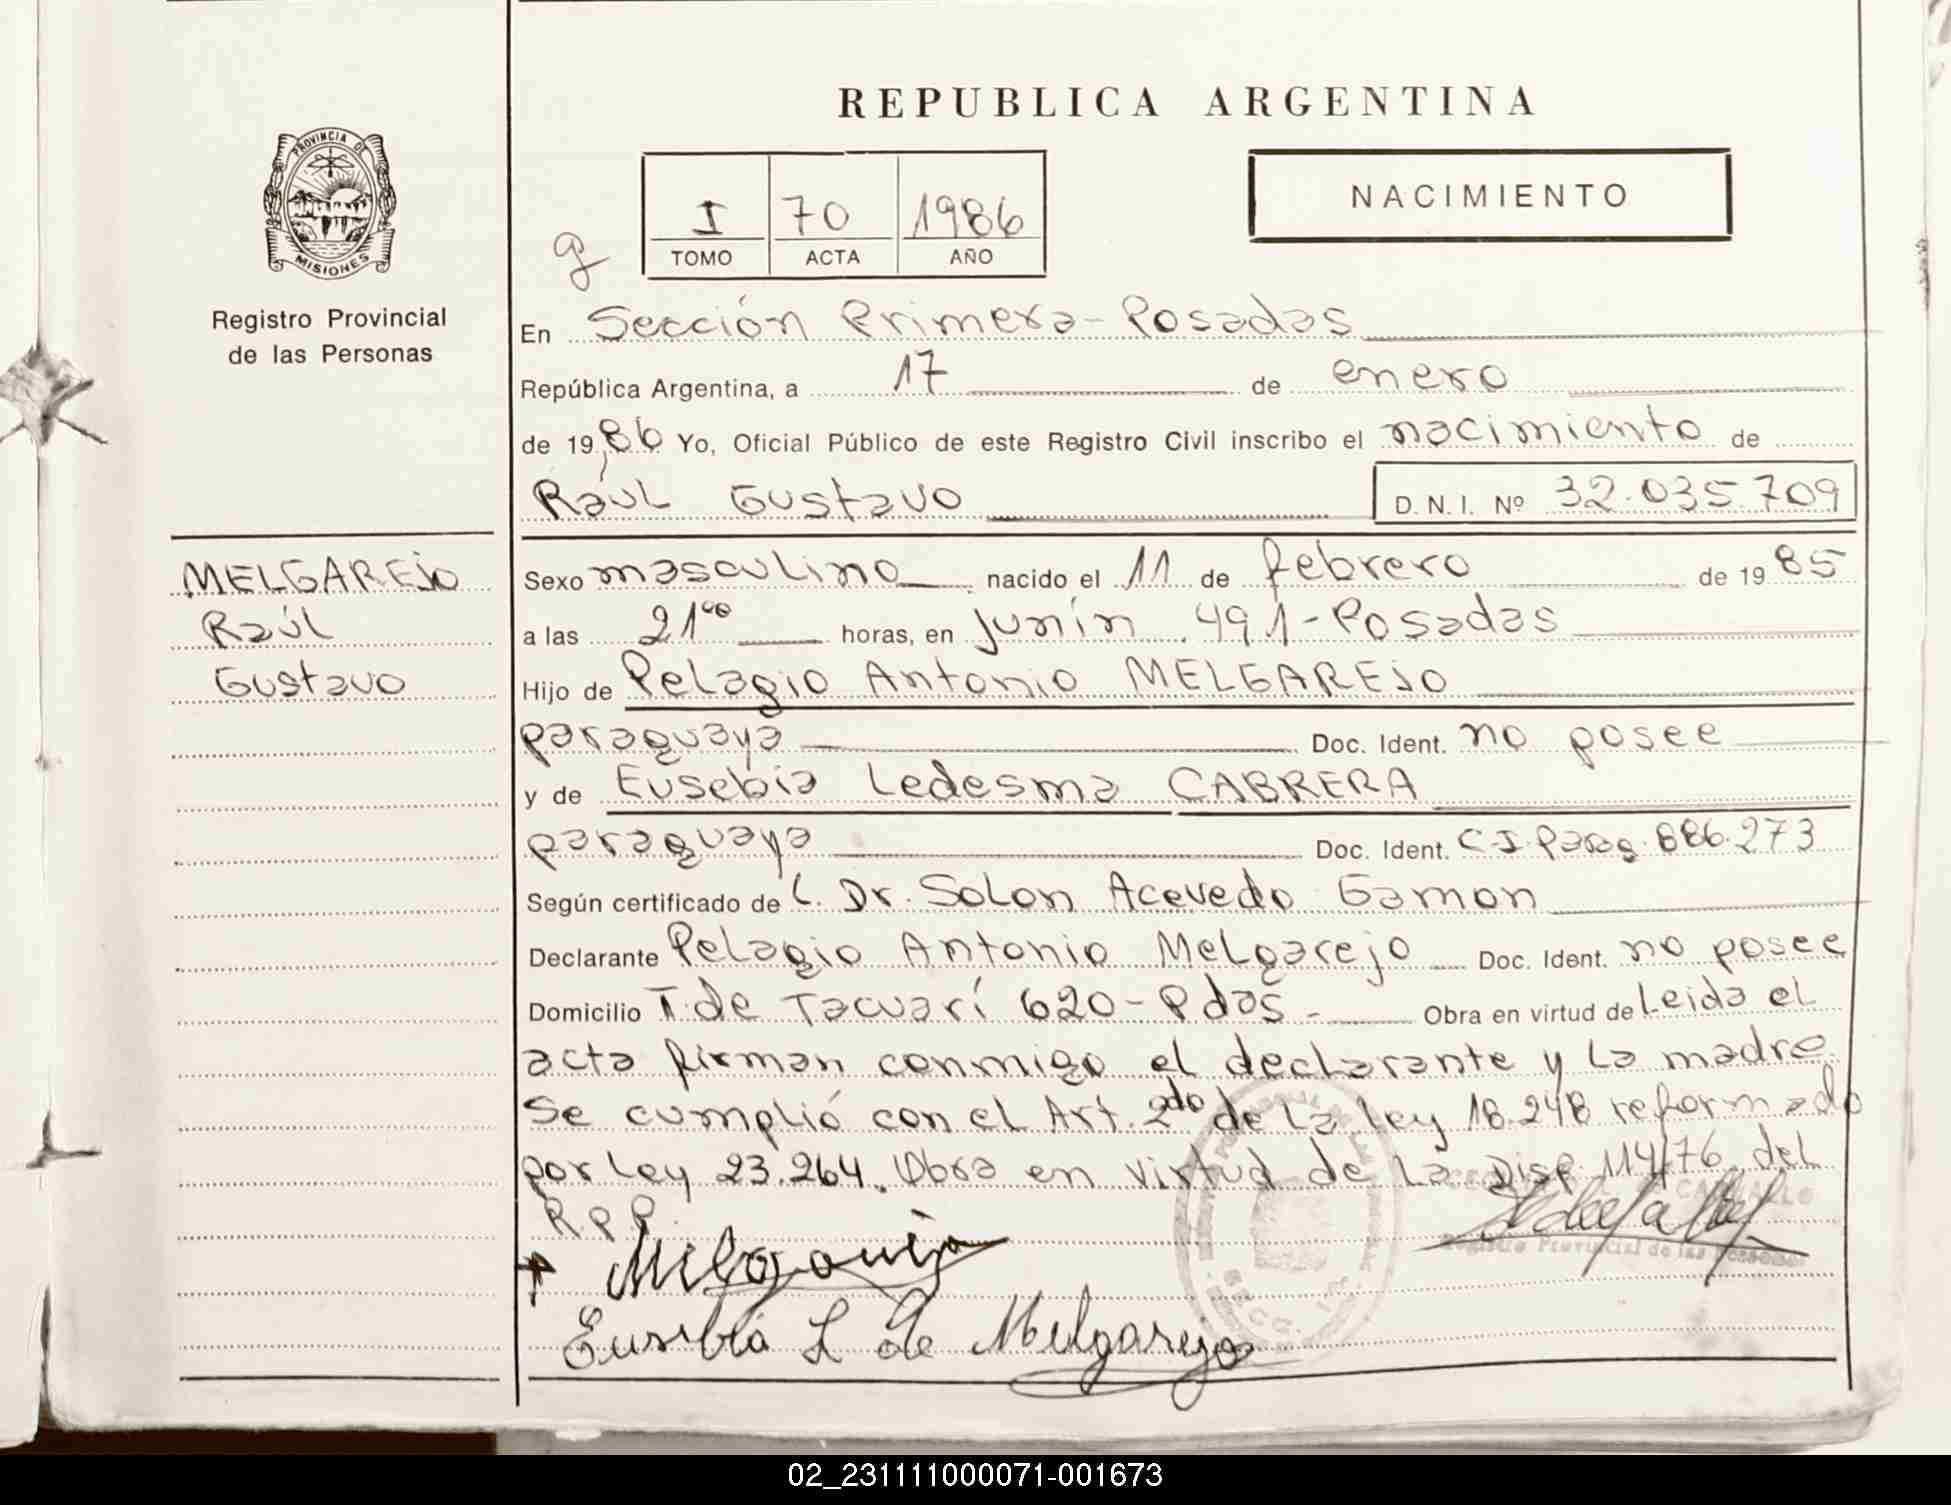 REPUBLICA ARGENTINA
PROVINCIA DE
MISIONES
Registro Provincial
de las Personas
I 70 1986
TOMO ACTA AÑO
NACIMIENTO
g
En Sección Primera - Posadas
República Argentina, a 17 de enero
de 1986 Yo, Oficial Público de este Registro Civil inscribo el nacimiento de
Raúl Gustavo D.N.I. Nº 32.035.709
MELGAREJO
Raúl
Gustavo
Sexo masculino nacido el 11 de febrero de 1985
a las 21 oo horas, en Junín 491 - Posadas
Hijo de Pelagio Antonio MELGAREJO
paraguaya Doc. Ident. no posee
y de Eusebia Ledesma CABRERA
paraguaya Doc. Ident. C.I. Parag. 886.273
Según certificado de L. Dr. Solon Acevedo Gamon
Declarante Pelagio Antonio Melgarejo Doc. Ident. no posee
Domicilio T. de Tacuarí 620 - Pdas. - Obra en virtud de Leida el
acta firman conmigo el declarante y la madre.
Se cumplió con el Art. 2do de la ley 18.248 reformado
por ley 23.264. Obra en virtud de la Disp. 114/76 del
R.P.P.
Registro Provincial de las Personas
Eusebia L de Melgarejo
02_231111000071-001673